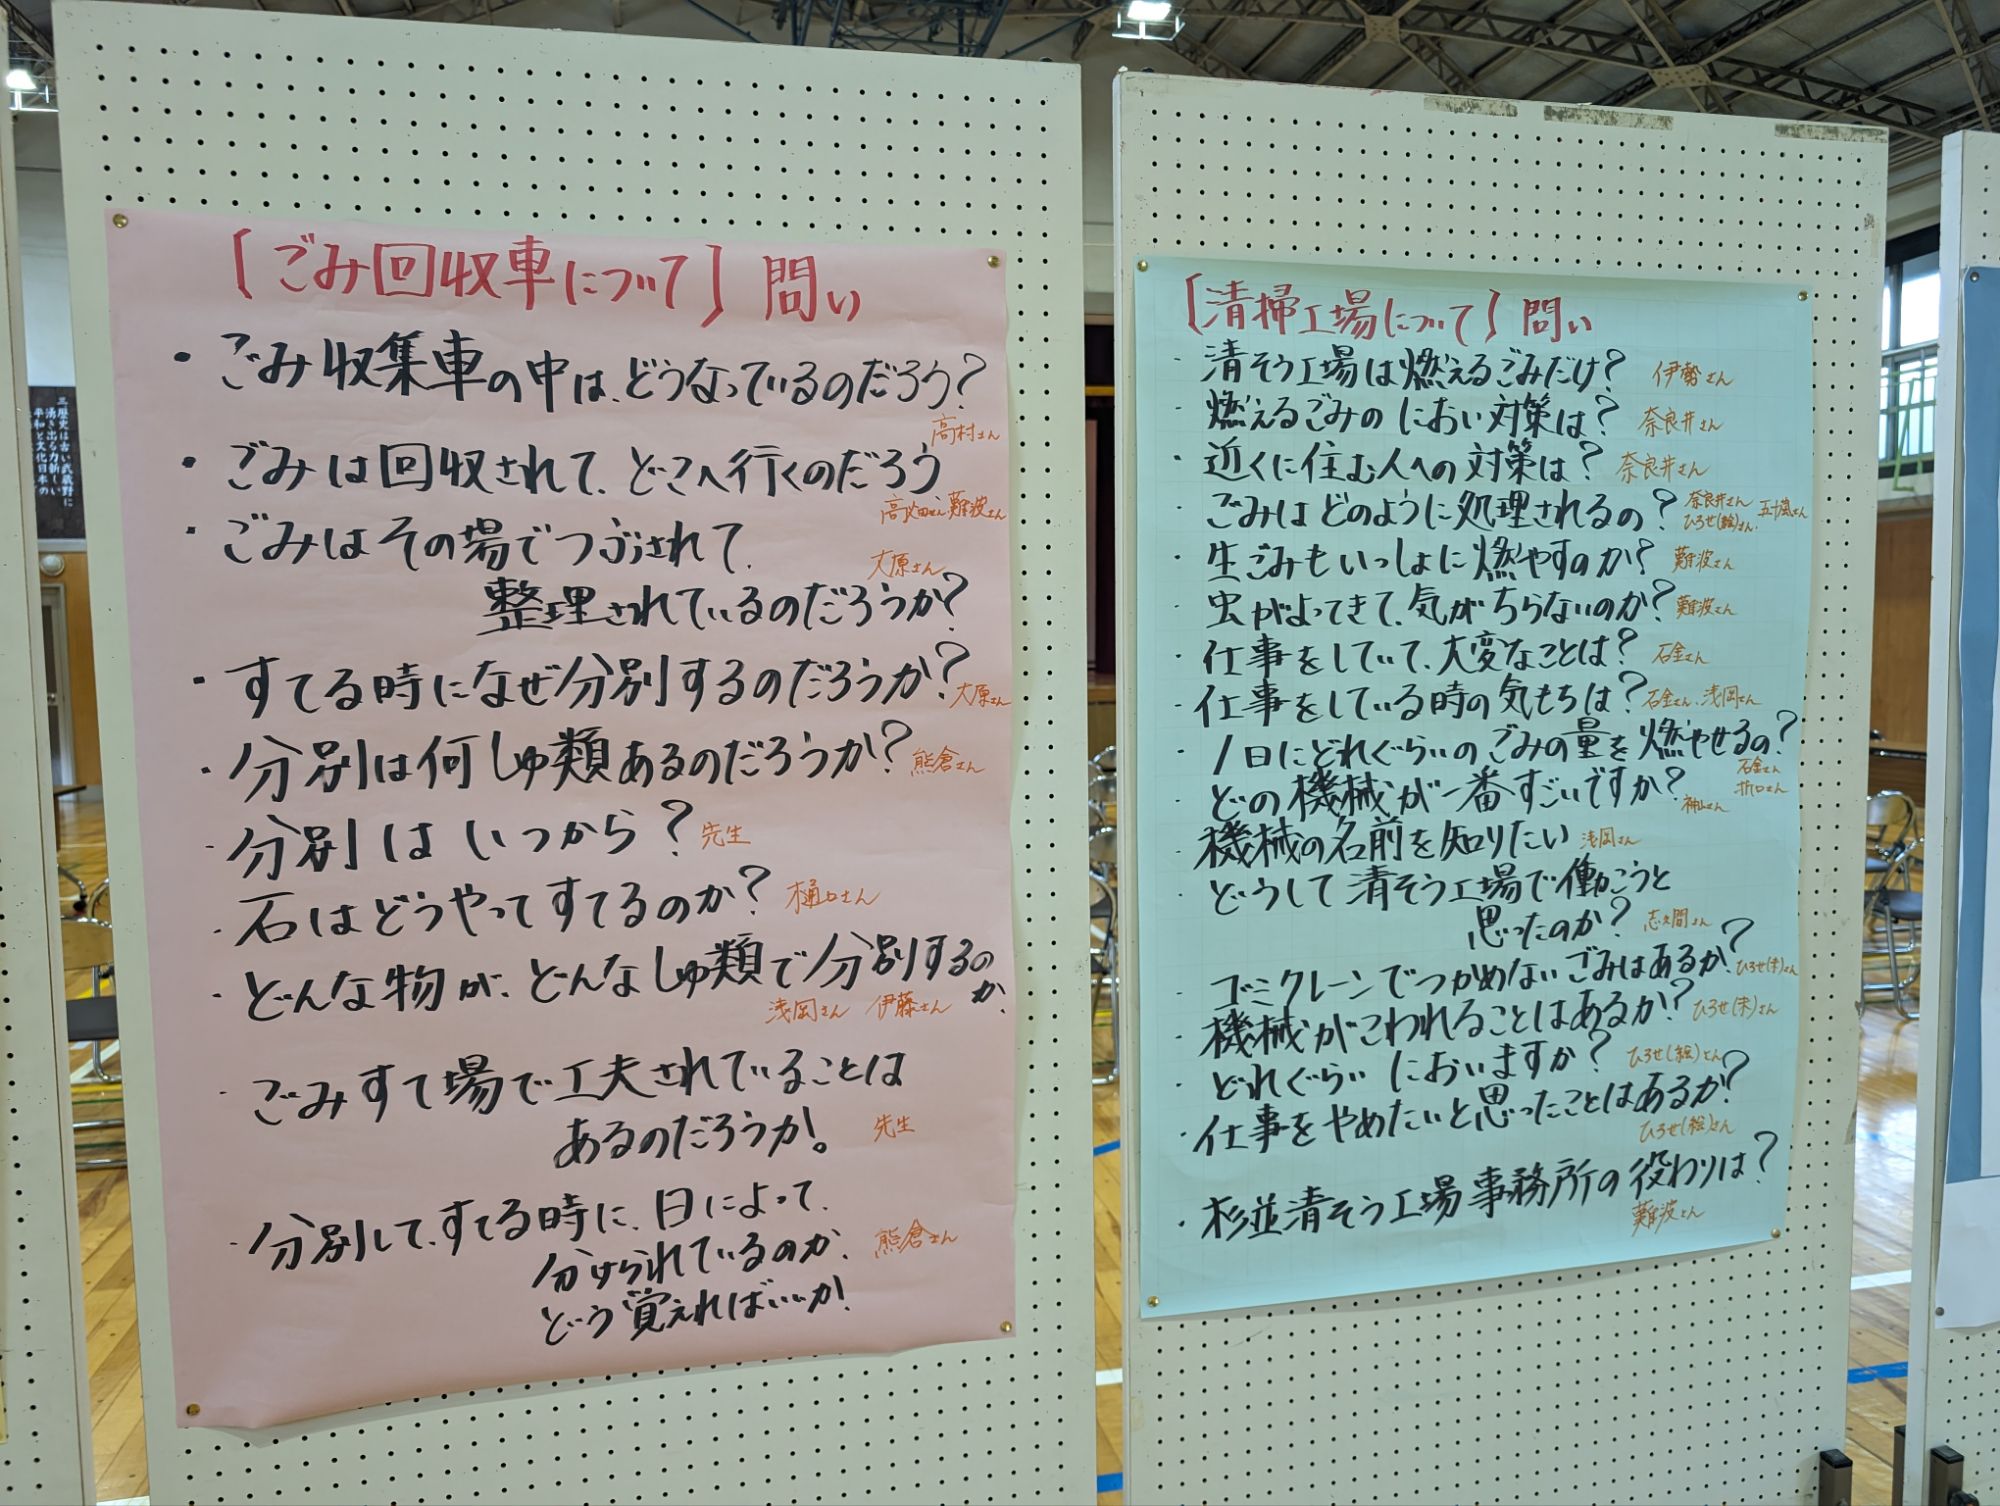 三 歴史は古い武蔵野に
湧き出る力新しい
平和と文化日本の
［ごみ回収車について］問い
・ごみ収集車の中は、どうなっているのだろう？
高村さん
・ごみは回収されて、どこへ行くのだろう
高畑さん、難波さん
・ごみはその場でつぶされて、
大原さん
整理されているのだろうか？
・すてる時になぜ分別するのだろうか？大原さん
・分別は何しゅ類あるのだろうか？熊倉さん
・分別はいつから？先生
・石はどうやってすてるのか？樋口さん
・どんな物が、どんなしゅ類で分別するのか、
浅岡さん 伊藤さん
・ごみすて場で工夫されていることは
あるのだろうか。 先生
・分別して、すてる時に、日によって、
分けられているのか、熊倉さん
どう覚えればいいか！
［清掃工場について］問い
・清そう工場は燃えるごみだけ？ 伊勢さん
・燃えるごみのにおい対策は？ 奈良井さん
・近くに住む人への対策は？ 奈良井さん
・ごみはどのように処理されるの？奈良井さん 五十嵐さん
ひろせ(絵)さん、
・生ごみもいっしょに燃やすのか？難波さん
・虫がよってきて、気がちらないのか？難波さん
・仕事をしていて、大変なことは？ 石金さん
・仕事をしている時の気もちは？石金さん、浅岡さん
・1日にどれぐらいのごみの量を燃やせるの？
石金さん
・どの機械が一番すごいですか？神山さん
・機械の名前を知りたい 浅岡さん
・どうして清そう工場で働こうと
思ったのか？ 志久間さん
・ゴミクレーンでつかめないごみはあるか？ひろせ(朱)さん
・機械がこわれることはあるか？ひろせ(朱)さん
・どれぐらいにおいますか？ひろせ(絵)さん
・仕事をやめたいと思ったことはあるか？
ひろせ(絵)さん
・杉並清そう工場事務所の役わりは？
難波さん